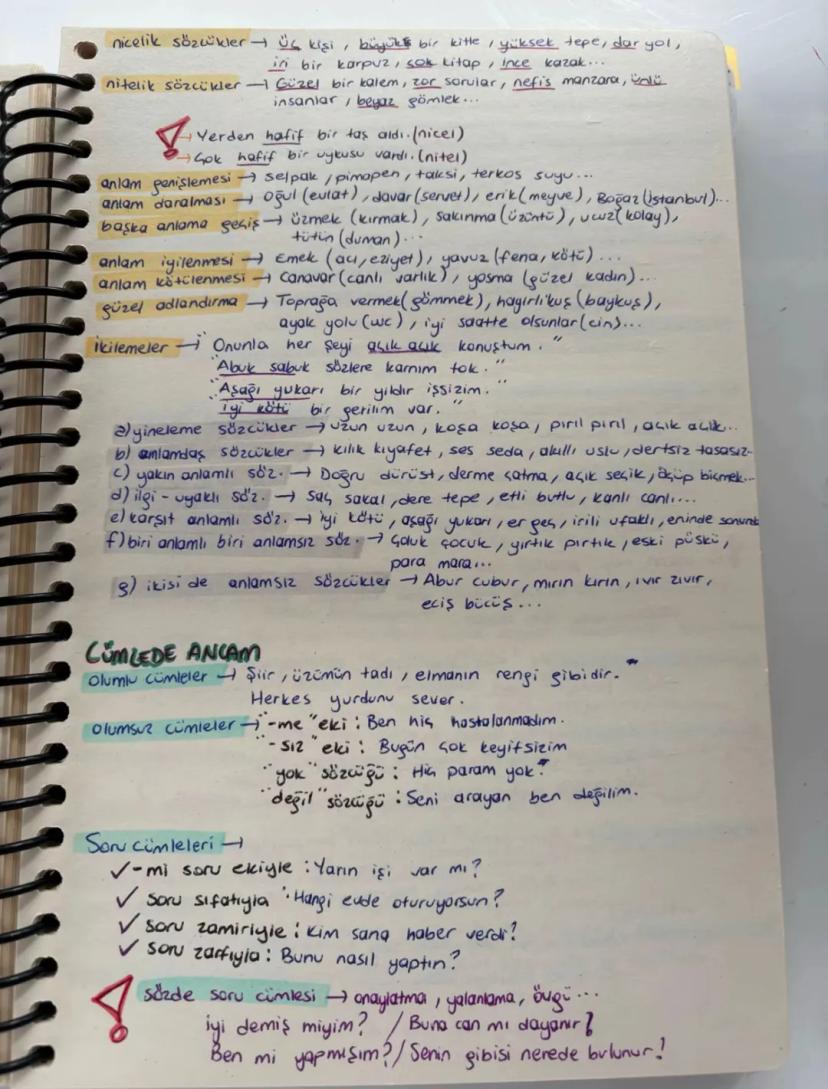 nicelik sözcükler → üç kişi, büyük bir kitle, yüksek tepe, dar yol,
iri bir karpuz, çok kitap, ince kazak...
nitelik sözcükler → Güzel bir kalem, zor sorular, nefis manzara, ünlü
insanlar, beyaz gömlek...
! → Yerden hafif bir taş aldı. (nicel)
→ Çok hafif bir uykusu vardı. (nitel)
anlam genişlemesi → selpak, pimapen, taksi, terkos suyu...
anlam daralması → oğul (evlat), davar (servet), erik (meyve), Boğaz (İstanbul)...
başka anlama geçiş → üzmek (kırmak), sakınma (üzüntü), ucuz (kolay),
tütün (duman)...
anlam iyilenmesi → Emek (acı, eziyet), yavuz (fena, kötü)...
anlam kötülenmesi → Canavar (canlı varlık), yosma (güzel kadın)...
güzel adlandırma → Toprağa vermek (gömmek), hayırlı kuş (baykuş),
ayak yolu (wc), iyi saatte olsunlar (cin)...
İkilemeler → "Onunla her şeyi açık açık konuştum."
"Abuk sabuk sözlere karnım tok."
"Aşağı yukarı bir yıldır işsizim."
"İyi kötü bir gerilim var."
a) yineleme sözcükler → uzun uzun, koşa koşa, pırıl pırıl, açık açık...
b) anlamdaş sözcükler → kılık kıyafet, ses seda, akıllı uslu, dertsiz tasasız...
c) yakın anlamlı söz. → Doğru dürüst, derme çatma, açık seçik, ölçüp biçmek...
d) ilgi-uyaklı söz. → saç sakal, dere tepe, etli butlu, kanlı canlı...
e) karşıt anlamlı söz. → iyi kötü, aşağı yukarı, er geç, irili ufaklı, eninde sonunda
f) biri anlamlı biri anlamsız söz. → Çoluk çocuk, yırtık pırtık, eski püskü,
para mara...
g) ikisi de anlamsız sözcükler → Abur cubur, mırın kırın, ıvır zıvır,
eciş bücüş...
CÜMLEDE ANLAM
Olumlu cümleler → Şiir, üzümün tadı, elmanın rengi gibidir."
Herkes yurdunu sever.
Olumsuz cümleler → "-me" eki: Ben hiç hastalanmadım.
"-sız" eki: Bugün çok keyifsizim
"yok" sözcüğü: Hiç param yok.
"değil" sözcüğü: Seni arayan ben değilim.
Soru cümleleri →
✓ -mi soru ekiyle: Yarın işi var mı?
✓ soru sıfatıyla: Hangi evde oturuyorsun?
✓ soru zamiriyle: Kim sana haber verdi?
✓ soru zarfıyla: Bunu nasıl yaptın?
! sözde soru cümlesi → onaylatma, yalanlama, övgü...
iyi demiş miyim? / Buna can mı dayanır?
Ben mi yapmışım? / Senin gibisi nerede bulunur!